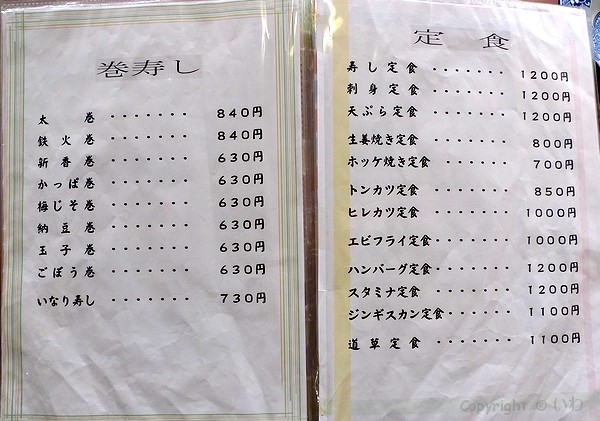 巻寿し
太巻・・・・・・・ 840円
鉄火巻・・・・・・・ 840円
新香巻・・・・・・・ 630円
かっぱ巻・・・・・・・ 630円
梅じそ巻・・・・・・・ 630円
納豆巻・・・・・・・ 630円
玉子巻・・・・・・・ 630円
ごぼう巻・・・・・・・ 630円
いなり寿し・・・・・・・ 730円
定食
寿し定食・・・・・・・ 1200円
刺身定食・・・・・・・ 1200円
天ぷら定食・・・・・・・ 1200円
生姜焼き定食・・・・・・・ 800円
ホッケ焼き定食・・・・・・・ 700円
トンカツ定食・・・・・・・ 850円
ヒレカツ定食・・・・・・・ 1000円
エビフライ定食・・・・・・・ 1000円
ハンバーグ定食・・・・・・・ 1200円
スタミナ定食・・・・・・・ 1200円
ジンギスカン定食・・・・・・・ 1100円
道草定食・・・・・・・ 1100円
Copyright © いわ